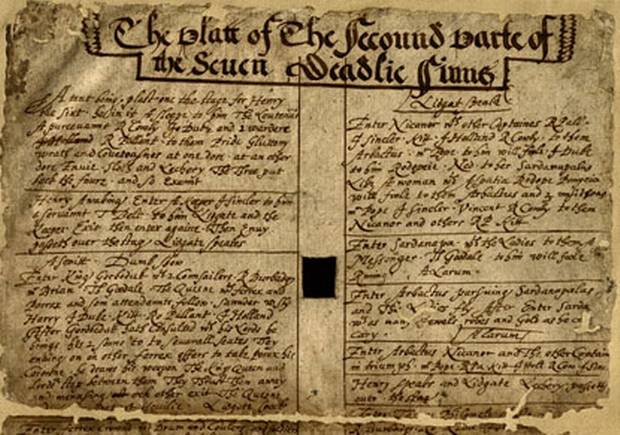 The platt of The Secound parte of
the Seuen Deadlie Sinns
A tent being plast one the stage for Henry
the sixt he in it A sleepe to him The Leutenãt
A purceuaunt R Cowly Jo Duke and 1 wardere
R Pallant to them Pride Gluttony
Wrath and Couetousnes at one dore at an other
dore Enuie Sloth and Lechery The Three put
back the foure and so Exeunt
Henry Awaking Enter A Keeper J Sincler to him
a seruaunt T Belt to him Lidgate and the
Keeper Exit then enter againe Then Enuy
passeth ouer the stag Lidgate speakes
A senitt Dumb show
Enter King Gorboduk wth 2 Counsailers R Burbadg
mr Brian Th Goodale The Queene wth ferrex and
Porrex and som attendaunts follow Saunder W sly
Harry J Duke Kitt Ro Pallant J Holland
After Gordbeduk hath Consulted wth his Lords he
brings his 2 sonns to to seuerall seates They
enuing on on other ferrex offers to take Porrex his
Corowne he draws his weopon The King Queen and
Lords step between them They Thrust Them away
and menasing ech other exit The Queene
Lidgate speakes
Enter ferrex Crownd wth Drum and Coulers
Lidgat speake
Enter Nicanor wth other Captaines R Pall
J Sincler Kitt J Holland R Cowly to them
Arbactus mr Pope to him will foole J Duke
to him Rodopeie Ned to her Sardanapalus
Like A woman wth Aspatia Rodope Pompeia
will foole to them Arbactus and 3 musitions
mr Pope J Sincler Vincent R Cowly to them
Nicanor and others R P Kitt
Enter Sardanapa wth the Ladies to them A
Messenger Th Goodale to him will foole
Runing A Larum
Enter Arbactus pursuing Sardanapalus
and The Ladies fly After Enter Sarda
wth as many Jewells robes and Gold as he ca
cary
A larum
Enter Arbactus Nicanor and The other Captains
in triumph mr Pope R Pa Kitt J Holl R Cow J Sinc
Henry speaks and Lidgate Lechery passeth
ouer the stag